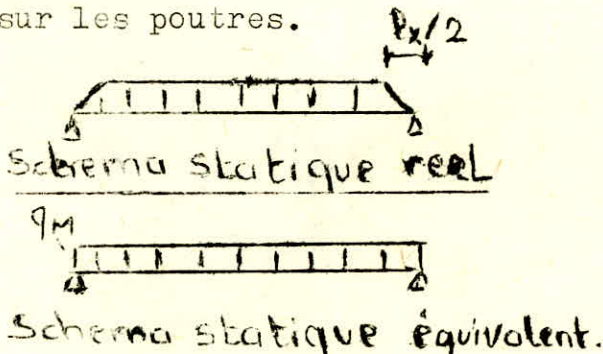 sur les poutres.
ℓx/2
Schema statique reel
qM
Schema statique équivalent.